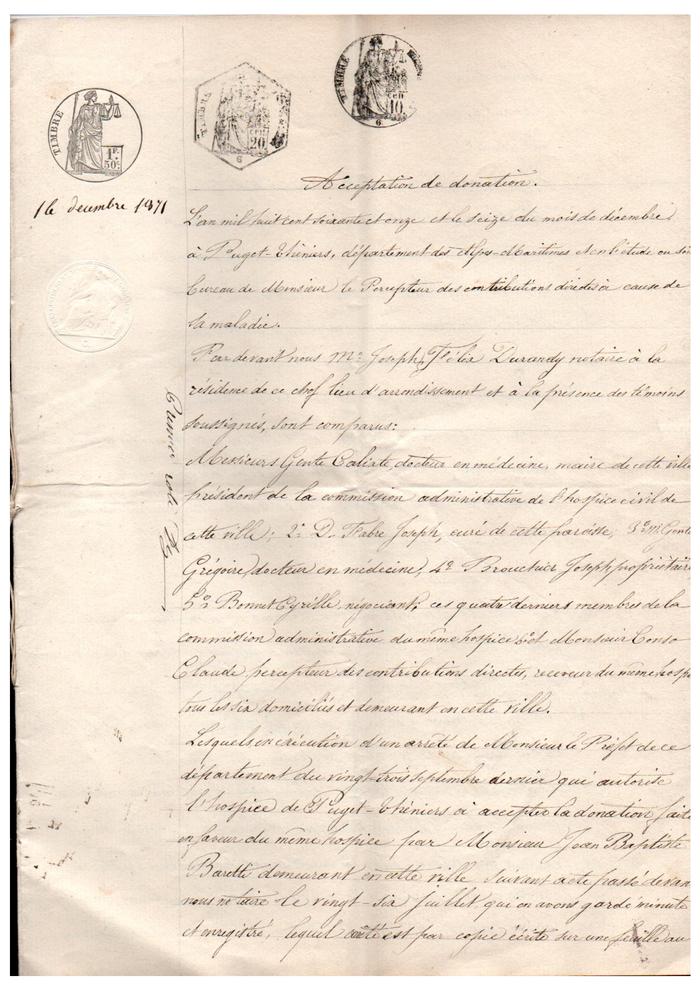 TIMBRE
1F.
50c.
TIMBRE
CEN
20
6
TIMBRE
CEN
10
6
16 decembre 1871
Acceptation de donation.
L'an mil huit cent soixante et onze et le seize du mois de décembre
à Puget-Théniers, département des Alpes-Maritimes et en l'étude ou sur
bureau de Monsieur le Percepteur des contributions directes à cause de
sa maladie.
Par devant nous Me Joseph, Félix Durandy notaire à la
résidence de ce chef lieu d'arrondissement et à la présence des témoins
soussignés, sont comparus:
Messieurs Gente Calixte, docteur en médecine, maire de cette ville
président de la commission administrative de l'hospice civil de
cette ville; 2º D. Fabre Joseph, curé de cette paroisse, 3º M. Gente
Grégoire, docteur en médecine, 4º Brouchier Joseph propriétaire
5º Bonnet Cyrille négociant; ces quatre derniers membres de la
commission administrative du même hospice 6º et Monsieur Conso
Claude percepteur des contributions directes, receveur du même hospi
tous les six domiciliés et demeurant en cette ville.
Lesquels en exécution d'un arrêté de Monsieur le Préfet de ce
département du vingt-trois septembre dernier qui autorise
l'hospice de Puget-Théniers à accepter la donation faite
en faveur du même hospice par Monsieur Jean Baptiste
Baretti demeurant en cette ville suivant acte passé devan
nous notaire le vingt-six juillet qui en avons gardé minute
et enregistré, lequel est par copie écrite sur une feuille au